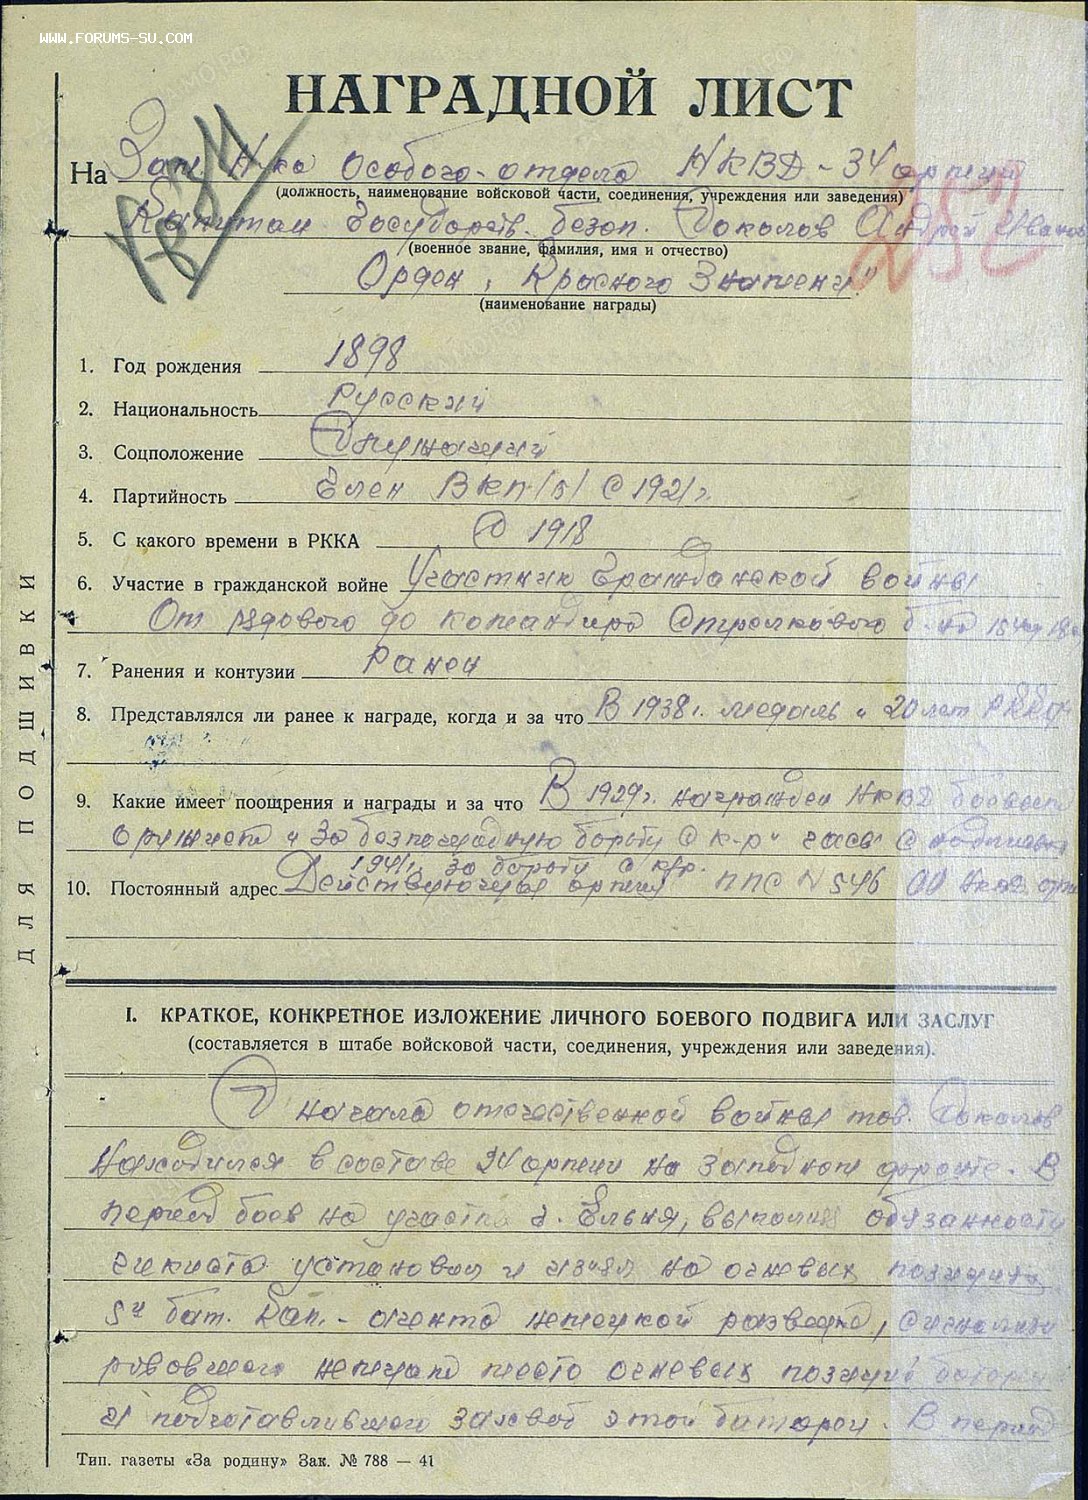 WWW.FORUMS-SU.COM
НАГРАДНОЙ ЛИСТ
На Зам. Н-ка Особого отдела НКВД - 34 армии
(должность, наименование войсковой части, соединения, учреждения или заведения)
Капитан Государств. безоп. Соколов Андрей Иванов
(военное звание, фамилия, имя и отчество)
Орден "Красного Знамени"
(наименование награды)
1. Год рождения 1898
2. Национальность Русский
3. Соцположение Служащий
4. Партийность Член ВКП/б/ с 1921 г.
5. С какого времени в РККА С 1918
6. Участие в гражданской войне Участник Гражданской войны
От рядового до командира Стрелкового
7. Ранения и контузии Ранен
8. Представлялся ли ранее к награде, когда и за что В 1938 г. медаль "20 лет РККА"
9. Какие имеет поощрения и награды и за что В 1929 г. награжден НКВД боевым
оружием "За беспощадную борьбу с к-р" часы с надписью
1941 г. за борьбу с к/р.
10. Постоянный адрес Действующая армия ППС N 546 ОО НКВД
ДЛЯ ПОДШИВКИ
I. КРАТКОЕ, КОНКРЕТНОЕ ИЗЛОЖЕНИЕ ЛИЧНОГО БОЕВОГО ПОДВИГА ИЛИ ЗАСЛУГ
(составляется в штабе войсковой части, соединения, учреждения или заведения).
С начала отечественной войны тов. Соколов
находился в составе 24 армии на Западном фронте. В
период боев на участке г. Ельня, выполняя обязанности
чекиста установил и изъял на огневых позициях
5й бат. Кап. - агента немецкой разведки, сигнализи
ровавшего немцам место огневых позиций батареи
и подготавливавшего захват этой батареи. В период
Тип. газеты «За родину» Зак. № 788 — 41